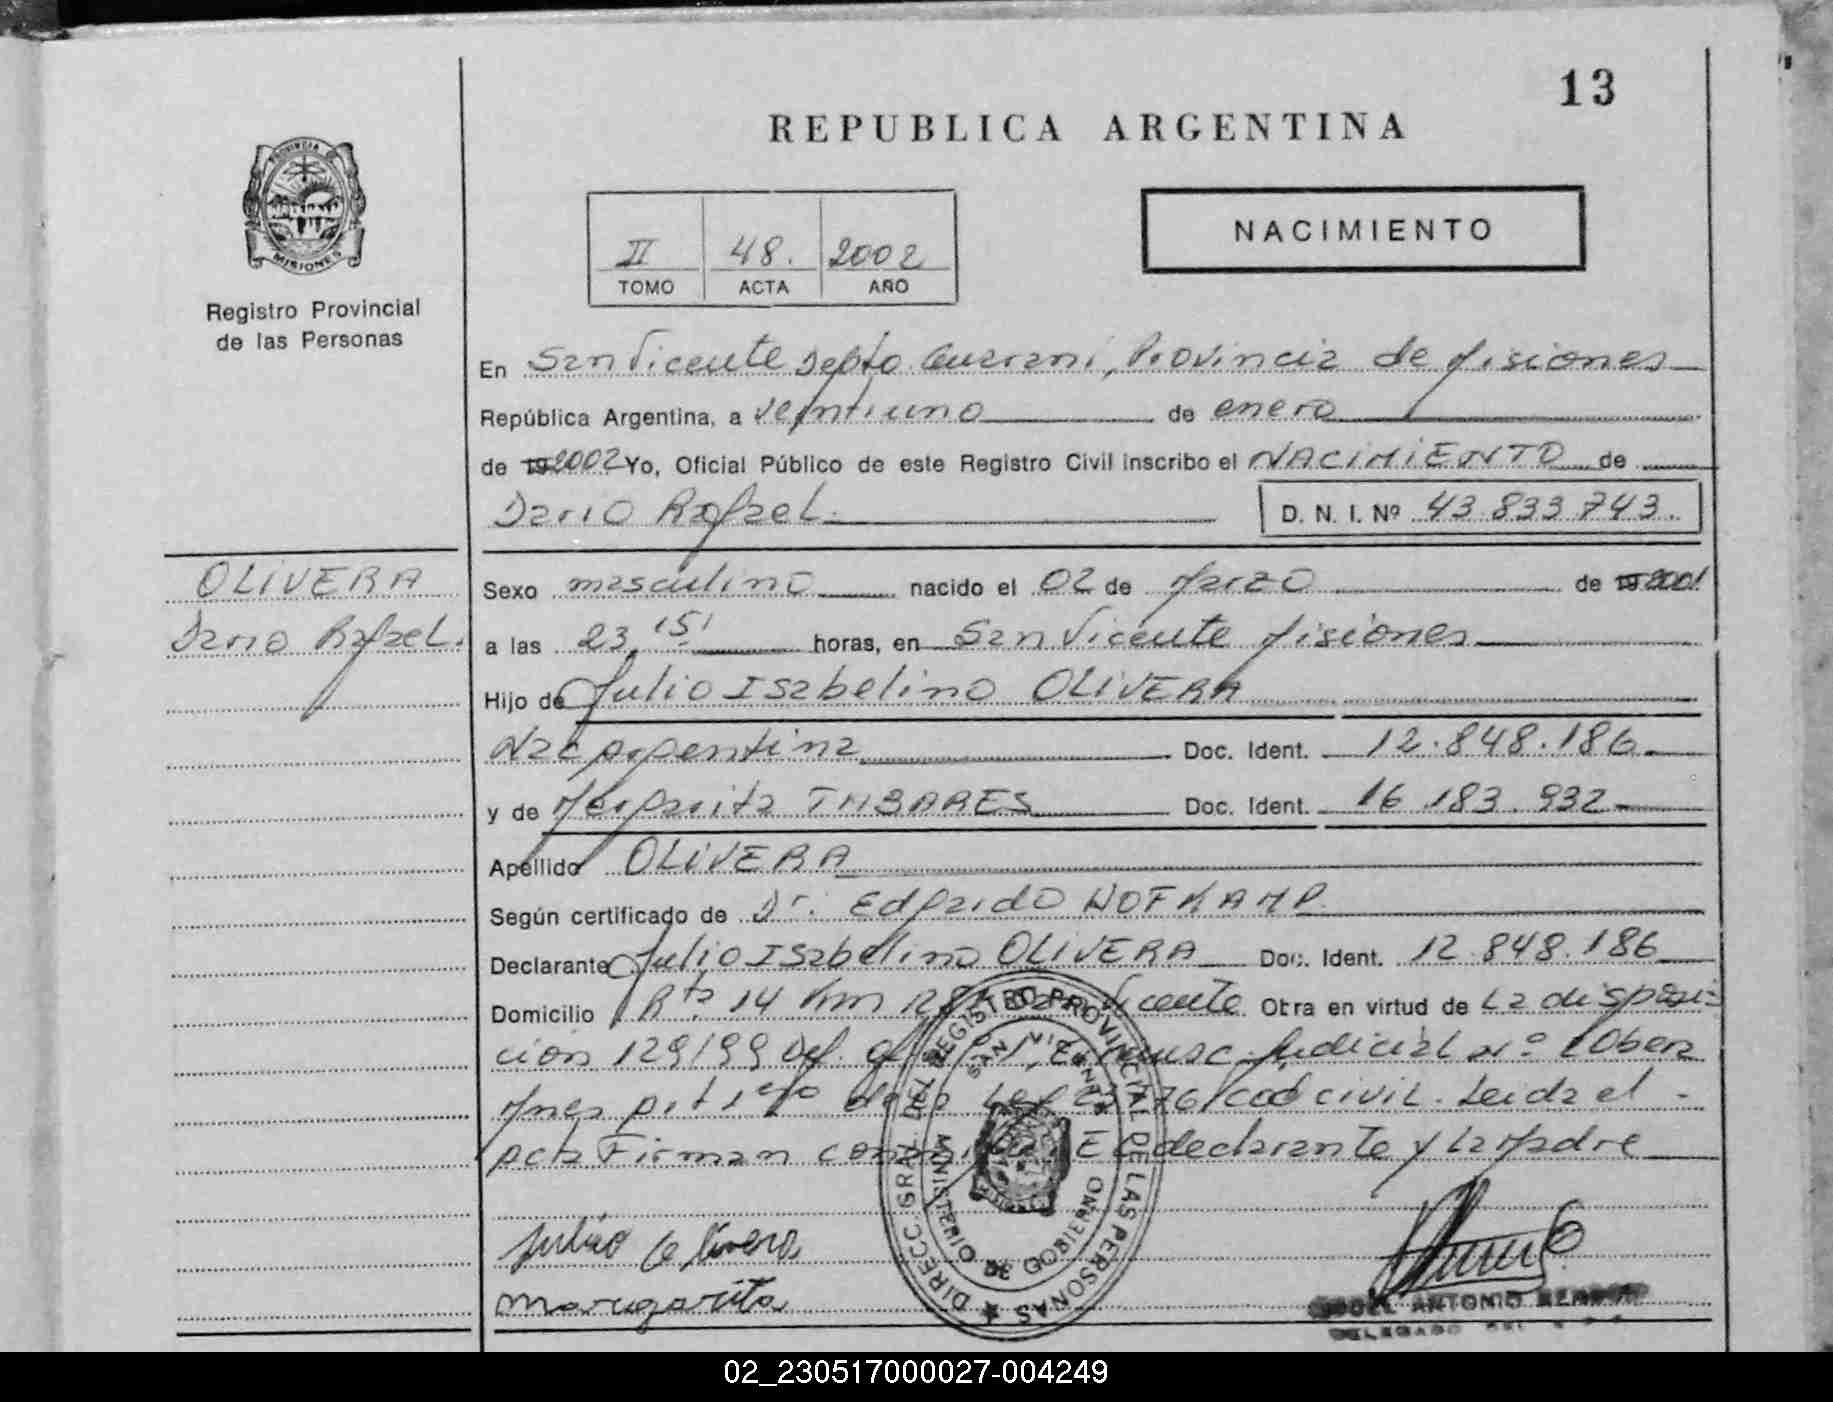 13
REPUBLICA ARGENTINA
PROVINCIA DE
MISIONES
Registro Provincial
de las Personas
NACIMIENTO
II 48. 2002
TOMO ACTA AÑO
En San Vicente Depto. Guarani, Provincia de Misiones
República Argentina, a veintiuno de enero
de 19 2002 Yo, Oficial Público de este Registro Civil inscribo el NACIMIENTO de
Dario Rafael. D. N. I. Nº 43.833.743.
OLIVERA
Dario Rafael.
Sexo masculino nacido el 02 de Marzo de 19 2001
a las 23,15' horas, en San Vicente Misiones
Hijo de Julio Isabelino OLIVERA
Nac Argentina Doc. Ident. 12.848.186
y de Margarita TABARES Doc. Ident. 16.183.932
Apellido OLIVERA
Según certificado de Dr. Edgardo HOFKAMP
Declarante Julio Isabelino OLIVERA Doc. Ident. 12.848.186
Domicilio Rta 14 Km Vicente Otra en virtud de La disposi=
cion 129/99 Judicial Nº 1 Obera
Mnes cod civil. Leida el
acta Firman El declarante y La Madre
Julio Olivera
Margarita
DIRECC. GRAL. DEL REGISTRO PROVINCIAL DE LAS PERSONAS
SAN VICENTE
MINISTERIO DE GOBIERNO
ANTONIO
DELEGADO
02_230517000027-004249